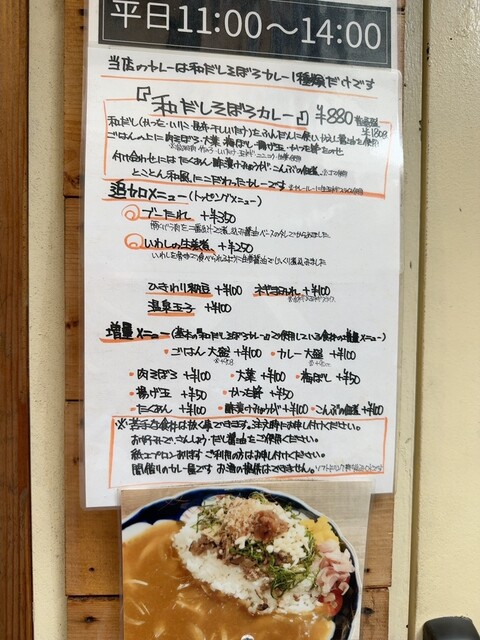 平日11:00〜14:00
当店のカレーは和だしそぼろカレー1種類だけです
『和だしそぼろカレー』 ¥880
ごはんの上に肉そぼろ・大葉・梅ぼし・揚げ玉・かつお粉をのせ
付け合わせにはたくあん・酢漬けみょうが・こんぶの佃煮
とことん和風にこだわったカレーです
追加メニュー(トッピングメニュー)
◎ ぶたれ +¥350
◎ いわしの生姜煮 +¥250
いわしを骨まで食べられるように
ひきわり納豆 +¥100
温泉玉子 +¥100
増量メニュー(基本の「和だしそぼろカレー」で使用している食材の増量メニュー)
・ごはん大盛 +¥100 ・カレー大盛 +¥100
・肉そぼろ +¥100 ・大葉 +¥100 ・梅ぼし +¥50
・揚げ玉 +¥50 ・かつお粉 +¥50
・たくあん +¥100 ・酢漬けみょうが +¥100 ・こんぶの佃煮 +¥100
※苦手な食材は抜く事できます。注文時にお申し付けください。
お好みで、さんしょう・だし醤油をご使用ください。
紙エプロンあります ご利用の方はお申し付けください。
間借りのカレー屋です お酒の提供はできません。